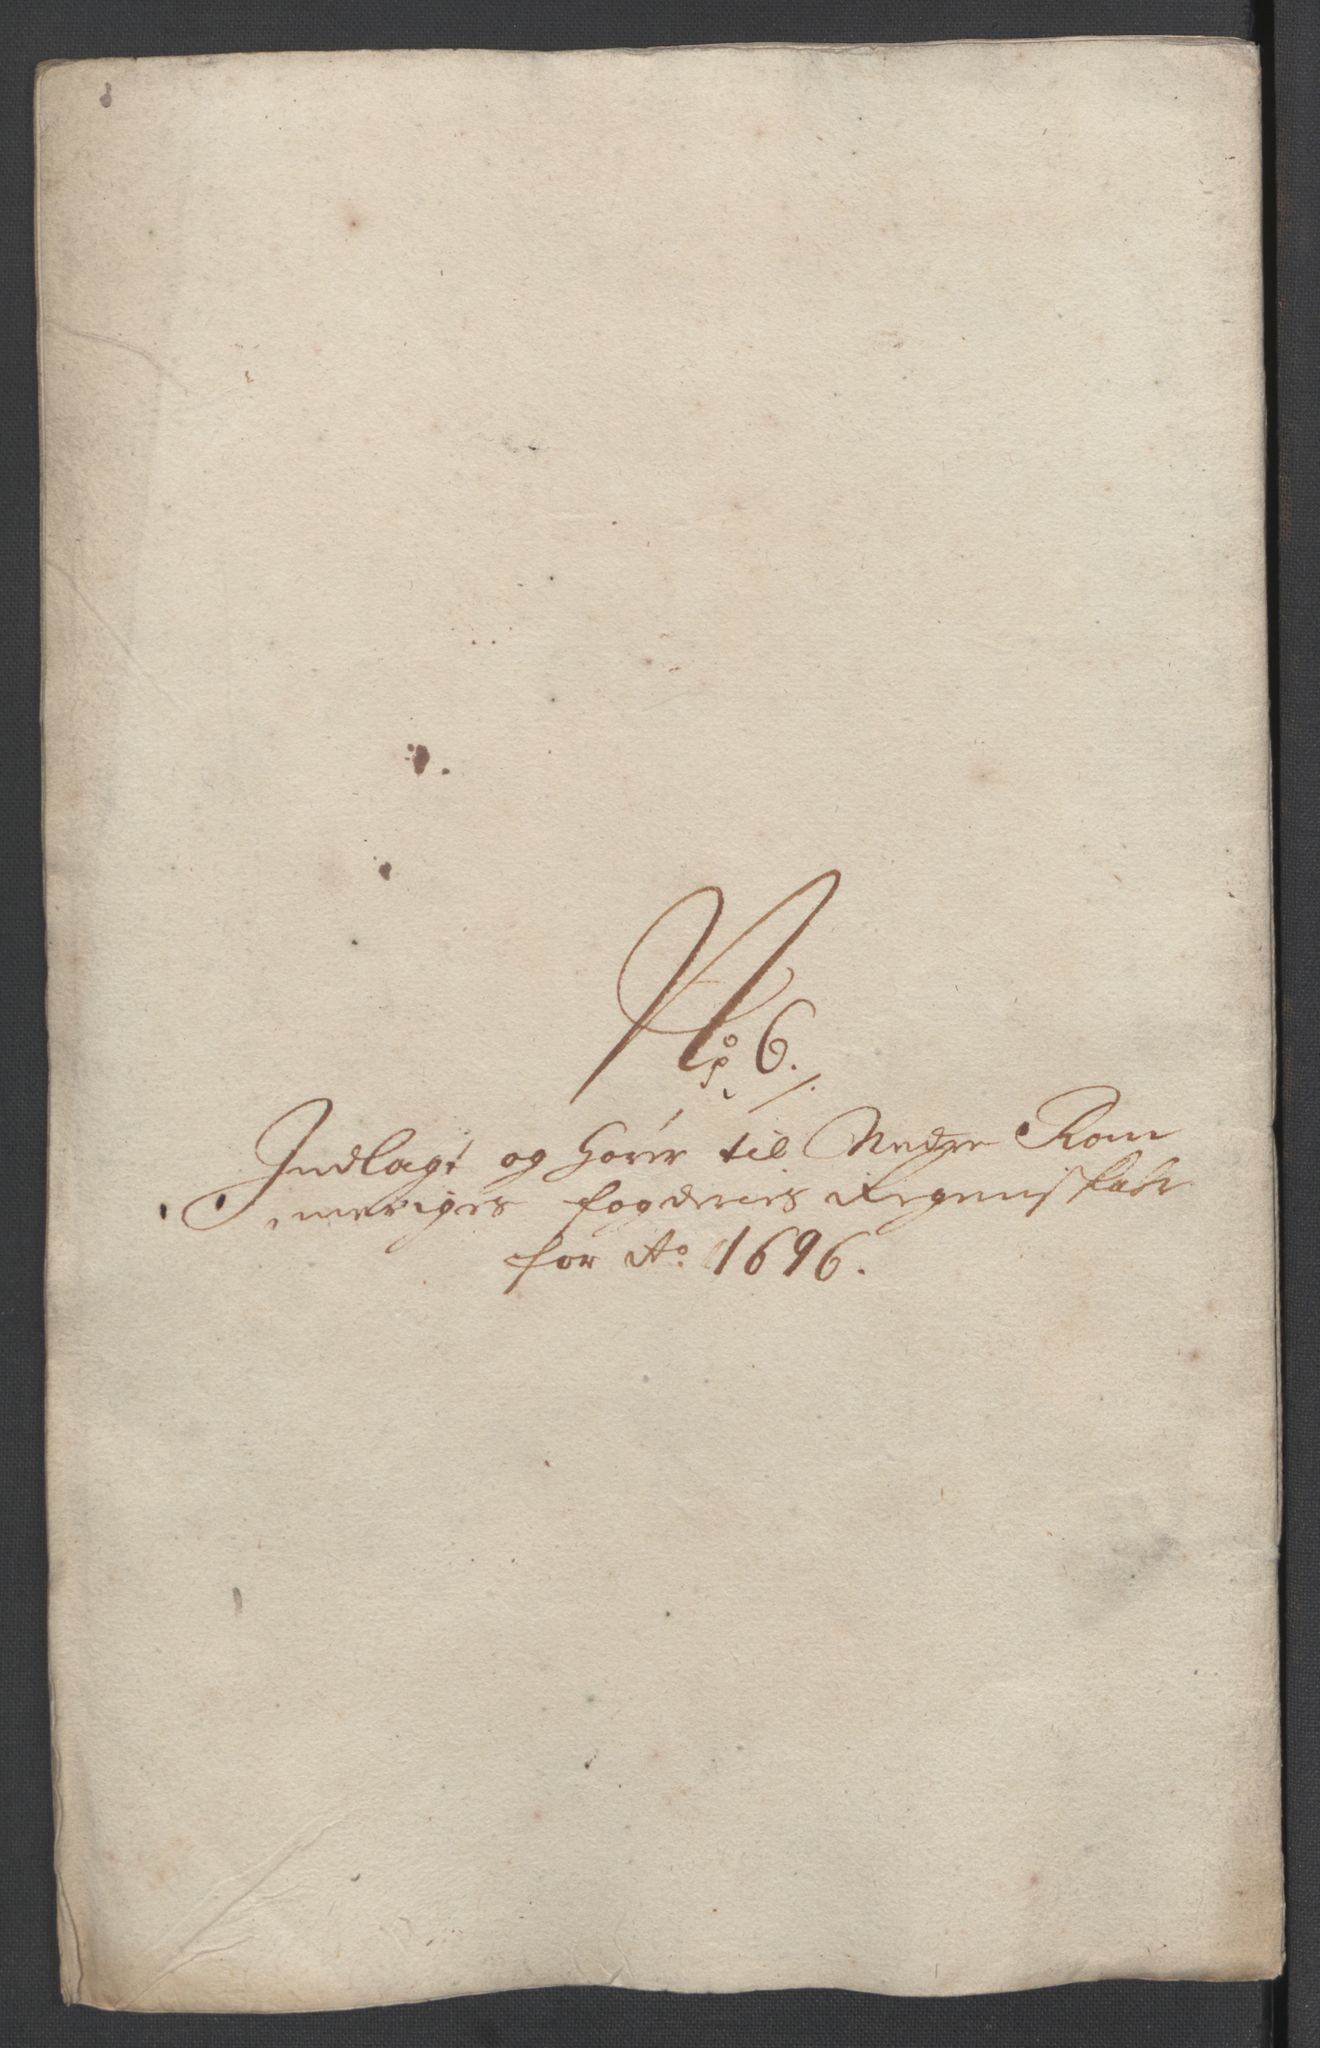 No 6.
Indlagt og hører til Nedre Rom
meriges fogderies Regenskab
for Ao. 1696.